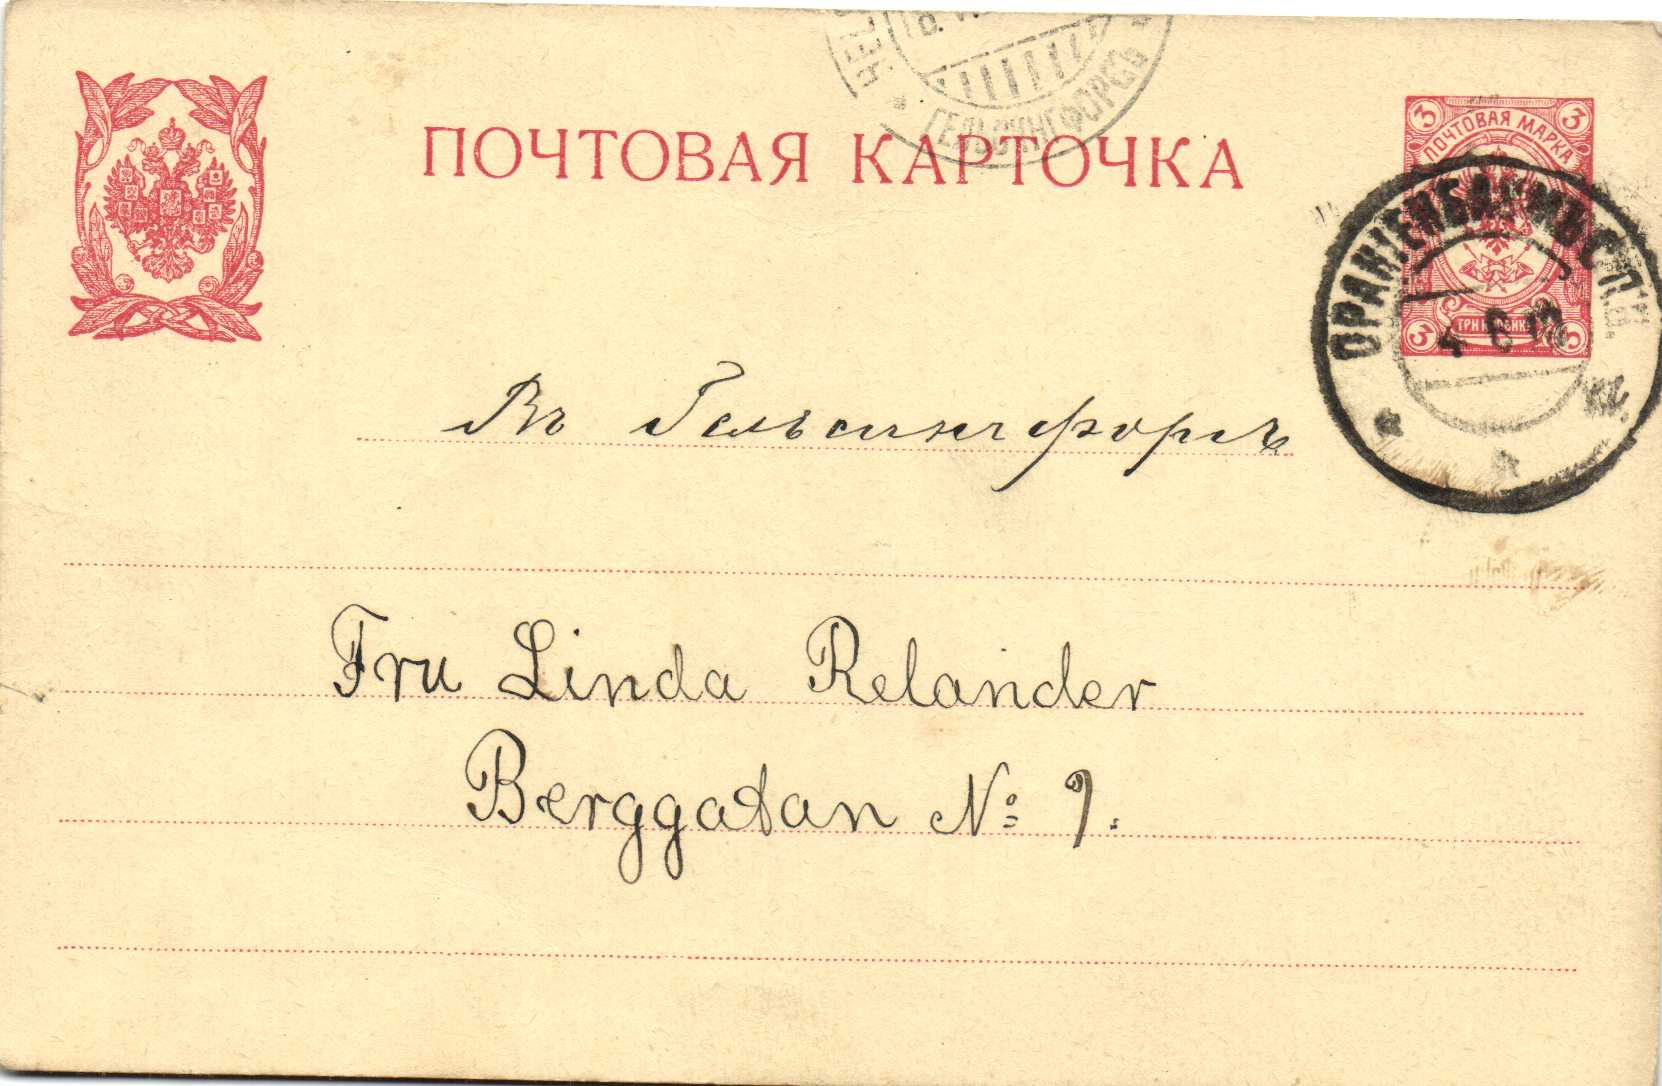 ГЕЛЬСИНГФОРСЪ
ПОЧТОВАЯ КАРТОЧКА
3 3
ПОЧТОВАЯ МАРКА
3 3
ОРАНІЕНБАУМЪ С.П.Б.
4 6
Въ Гельсингфорсъ
Fru Linda Relander
Berggatan № 9.